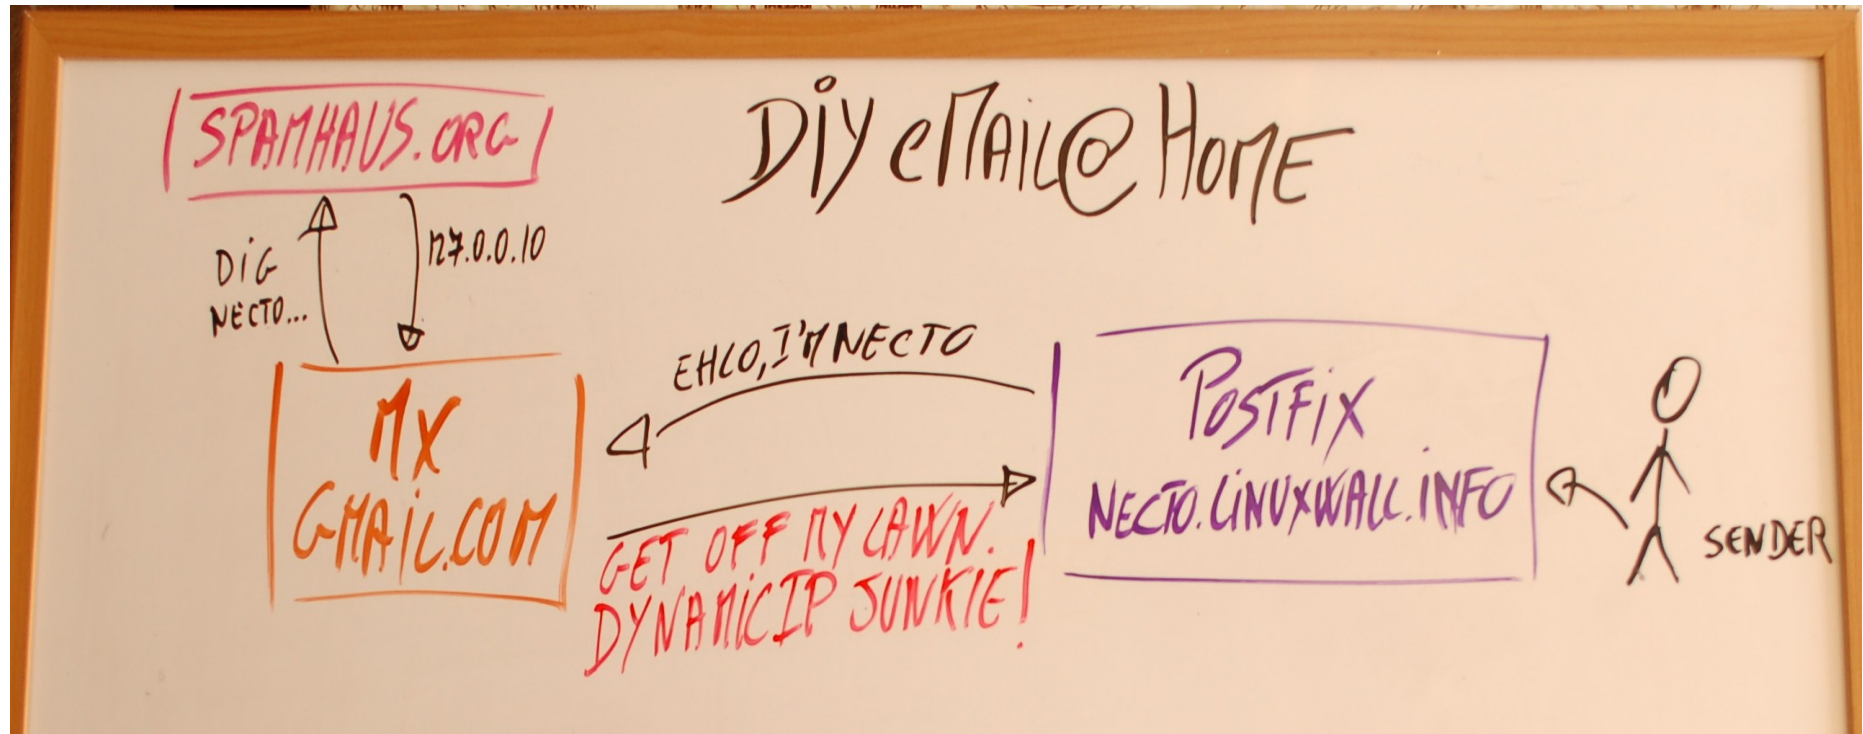 DiY eMAiL@HOME
SPAMHAUS.ORG
DiG
NECTO...
127.0.0.10
MX
GMAiL.COM
EHLO, I'M NECTO
GET OFF MY LAWN.
DYNAMiC IP JUNKIE!
POSTFiX
NECTO.LiNUXWALL.iNFO
SENDER